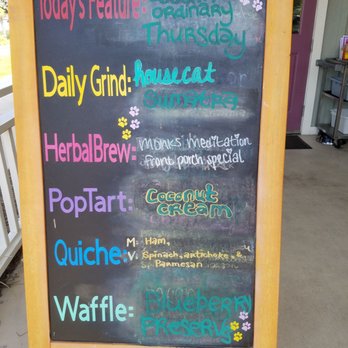 Today's Feature:
ordinary
Thursday
Daily Grind: housecat
or
Sumatra
HerbalBrew: Monks' Meditation
front porch special
PopTart: Coconut
cream
Quiche: M: Ham,
V: Spinach, artichoke, &
Parmesan
Waffle: Blueberry
Preserve